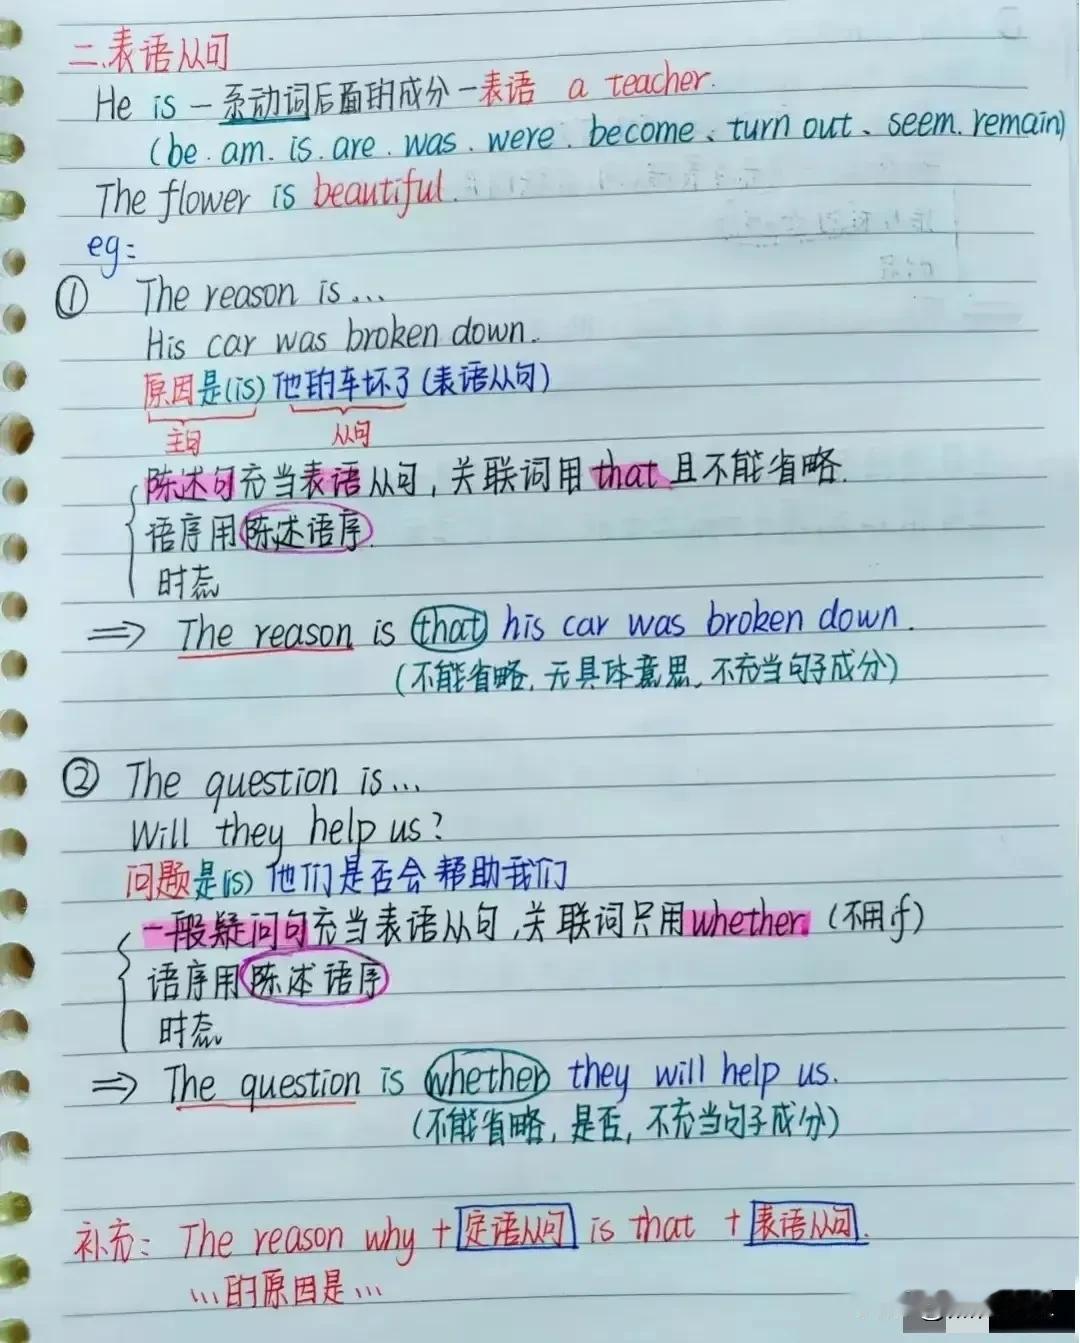 二.表语从句
He is — 系动词后面的成分 — 表语 a teacher.
(be. am. is. are. was. were. become、turn out、seem. remain)
The flower is beautiful.
eg:
① The reason is...
His car was broken down.
原因是(is) 他的车坏了(表语从句)
主句 从句
陈述句充当表语从句, 关联词用 that 且不能省略.
语序用陈述语序.
时态
=> The reason is that his car was broken down.
(不能省略, 无具体意思, 不充当句子成分)
② The question is...
Will they help us?
问题是(is) 他们是否会帮助我们
一般疑问句充当表语从句, 关联词只用 whether. (不用if)
语序用陈述语序
时态
=> The question is whether they will help us.
(不能省略, 是否, 不充当句子成分)
补充: The reason why + 定语从句 is that + 表语从句.
...的原因是...